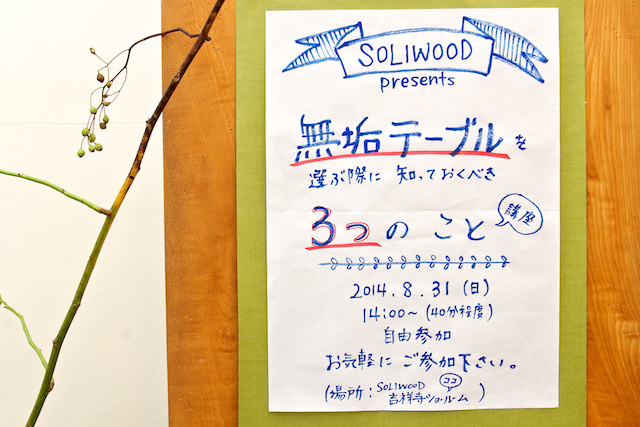 SOLIWOOD
presents
無垢テーブルを
選ぶ際に 知っておくべき
3つのこと
講座
2014.8.31(日)
14:00〜(40分程度)
自由参加
お気軽にご参加下さい。
(場所:SOLIWOOD
ココ
吉祥寺ショールーム)